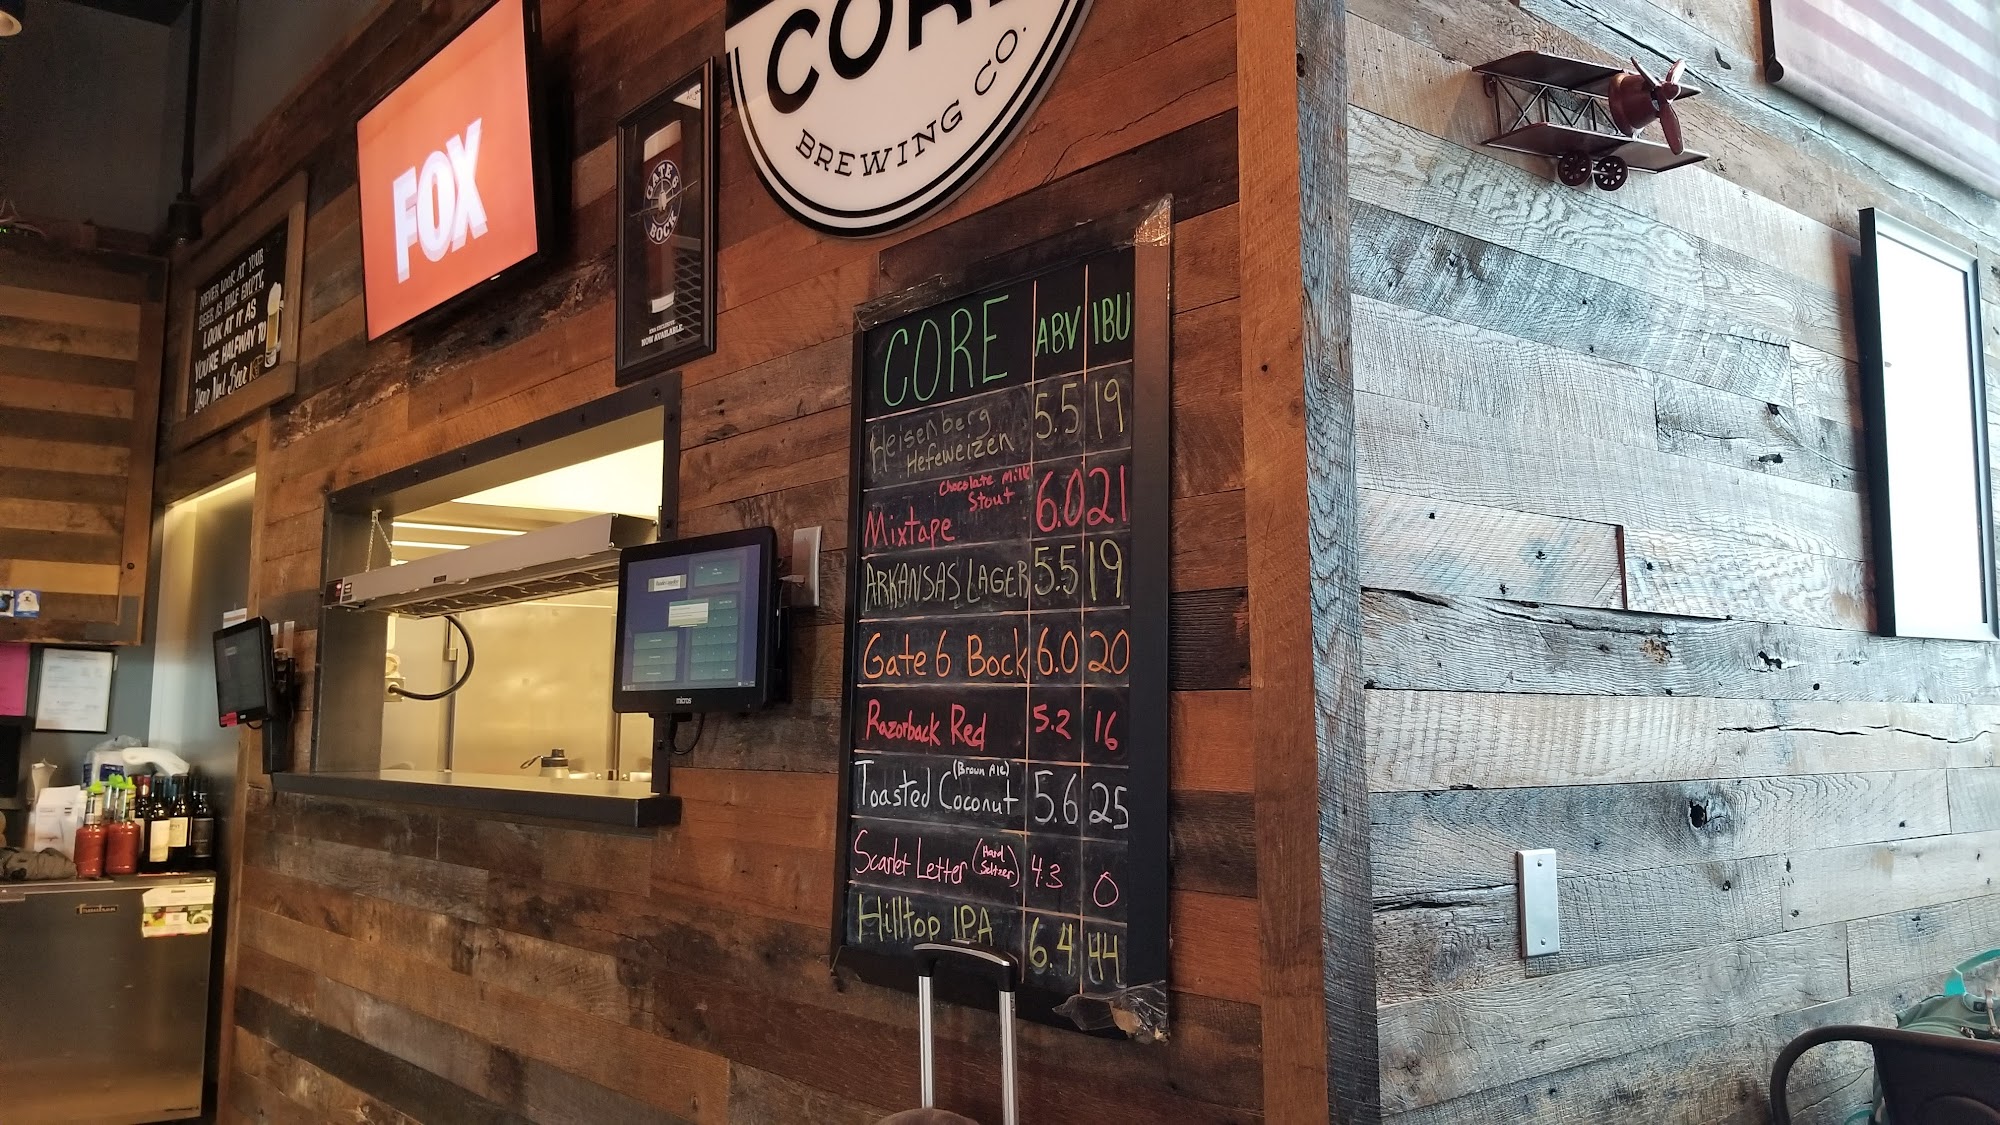 NEVER LOOK AT YOUR
BEER AS HALF EMPTY,
LOOK AT IT AS
YOU'RE HALFWAY TO
Your Next Beer
FOX
GATE 6
BOCK
NOW AVAILABLE.
CORE
BREWING CO.
micros
CORE ABV IBU
Heisenberg
Hefeweizen 5.5 19
Chocolate Milk
Stout
Mixtape 6.0 21
ARKANSAS LAGER 5.5 19
Gate 6 Bock 6.0 20
Razorback Red 5.2 16
(Brown Ale)
Toasted Coconut 5.6 25
Scarlet Letter (Hard Seltzer) 4.3 0
Hilltop IPA 6.4 44